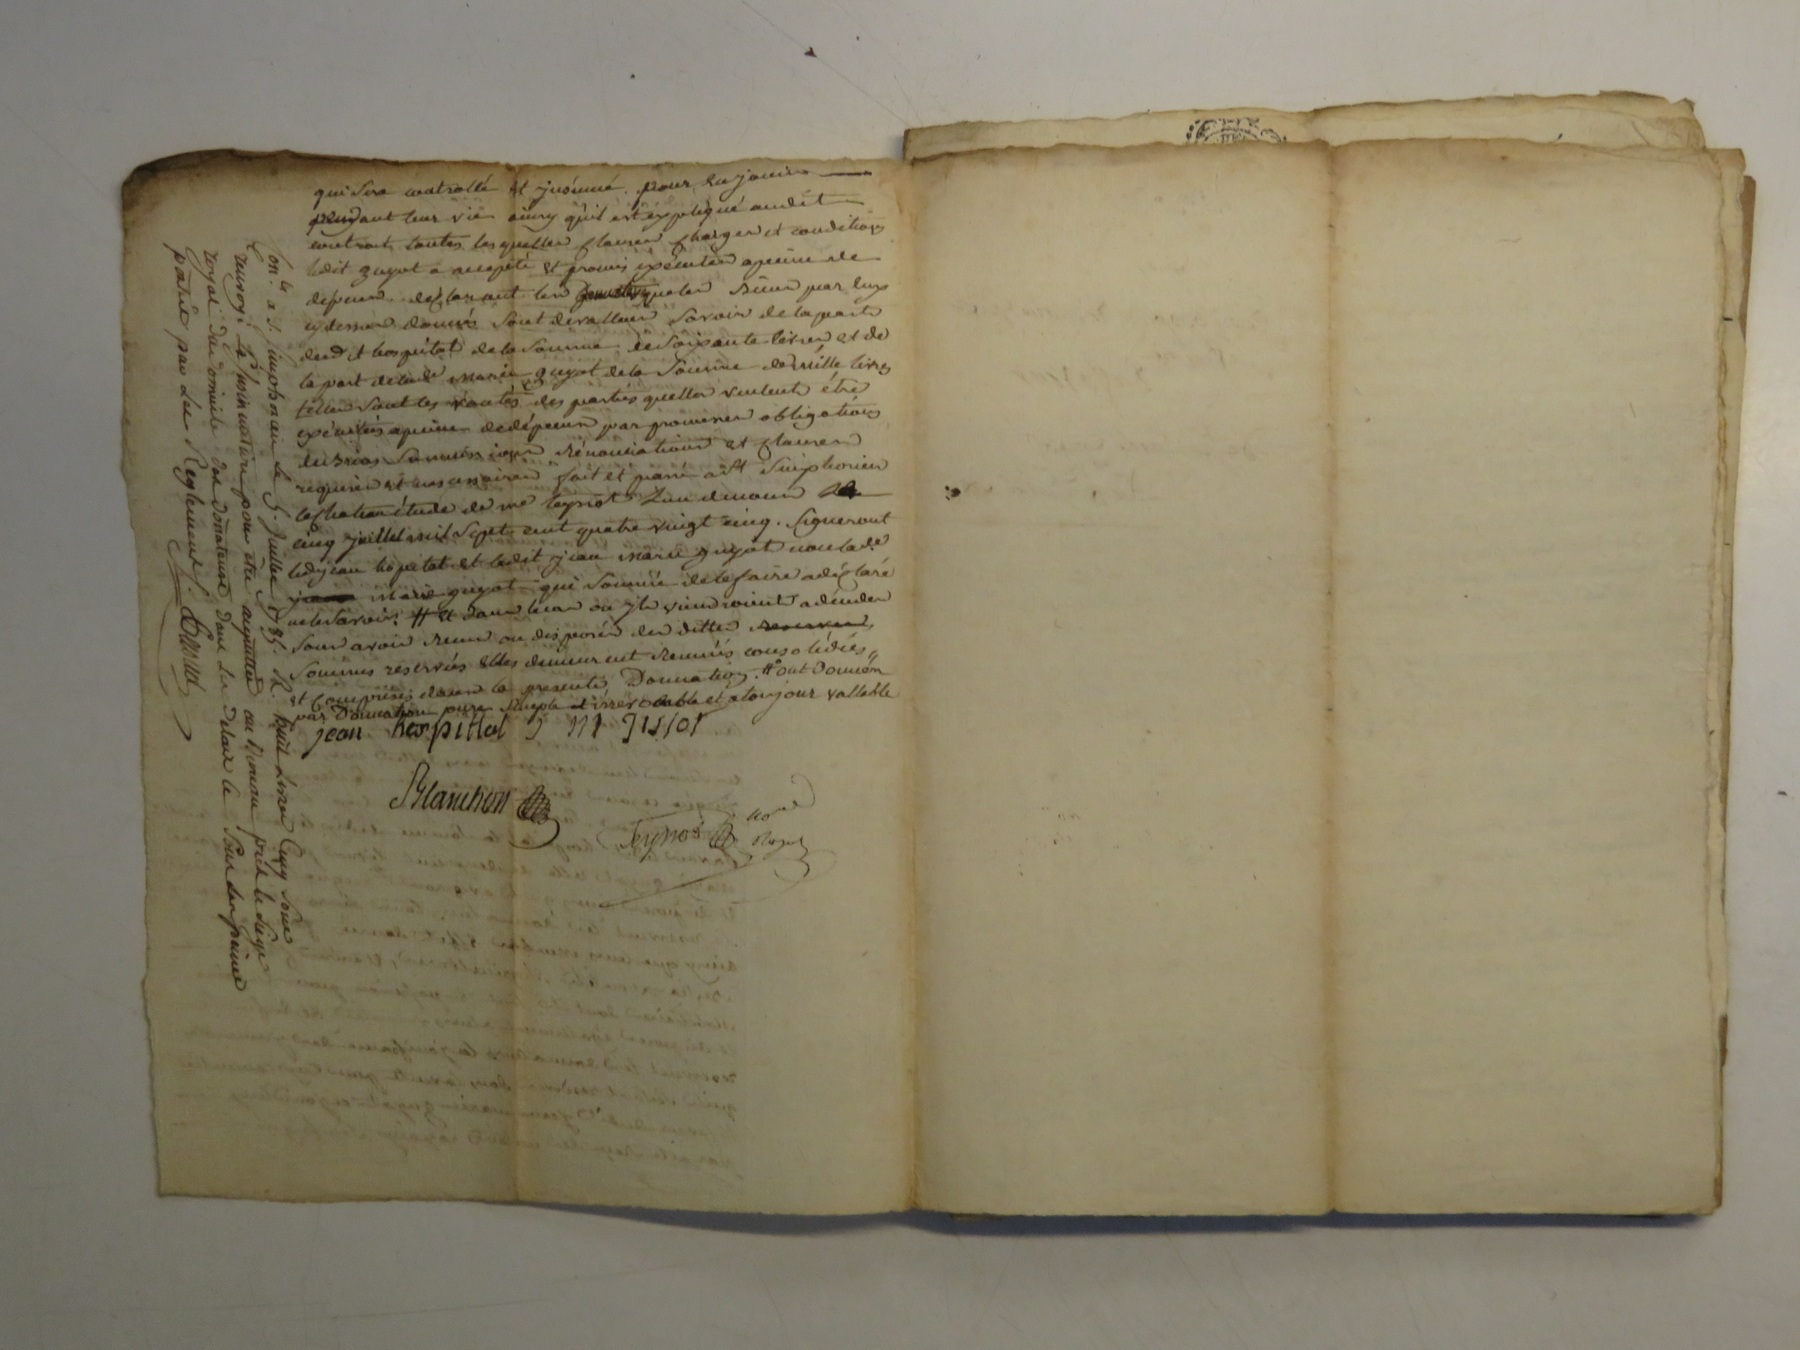 qui sera controllé et insinué. pour en jouir
pendant leur vie ainsy qu'il est expliqué audit
contrat toutes lesquelles clauses charges et conditions
ledit guyot a accepté et promis exécuter a peine de
depens. declarant les quelles biens par eux
cy dessus donnés sont de valleur savoir de la part
dud.t hospital de la somme de soixante livres et de
la part de lad.e marie guyot de la somme de mille livres
telles sont les vontés des parties quelles veulent étre
exécutés apeine de dépens par promesses obligations
de biens soumissions rénonciations et clauses
requises et necessaires fait et passé a S.t Simphorien
le chatean étude de me teynot l'un de nous
cinq juillet mil sept cent quatre vingt cinq. Signeront
led. jean hopital et ledit jean marie guyot non lad.e
marie guyot qui sommée de le faire a déclaré
ne le savoir. # et dans le cas ou ils viendroient a déceder
sans avoir disposés des dittes
sommes réservés elles demeurent réunies consolidées
et comprises dans la presente Donnation. # ont Donnée
par Donnation pure simple et irrévocable et a toujour vallable
jean hospittal J M Jissot
Blanchon
Teynot no.re Royal
Con.lé a S. Simphorien le 5. Juillet 1785. R. huit livres sous
renvoyé le insinuation pour etre acquitté au bureau près le siege
royal du domicile des donateurs dans les delais le sous les peines
portés par les Reglements.